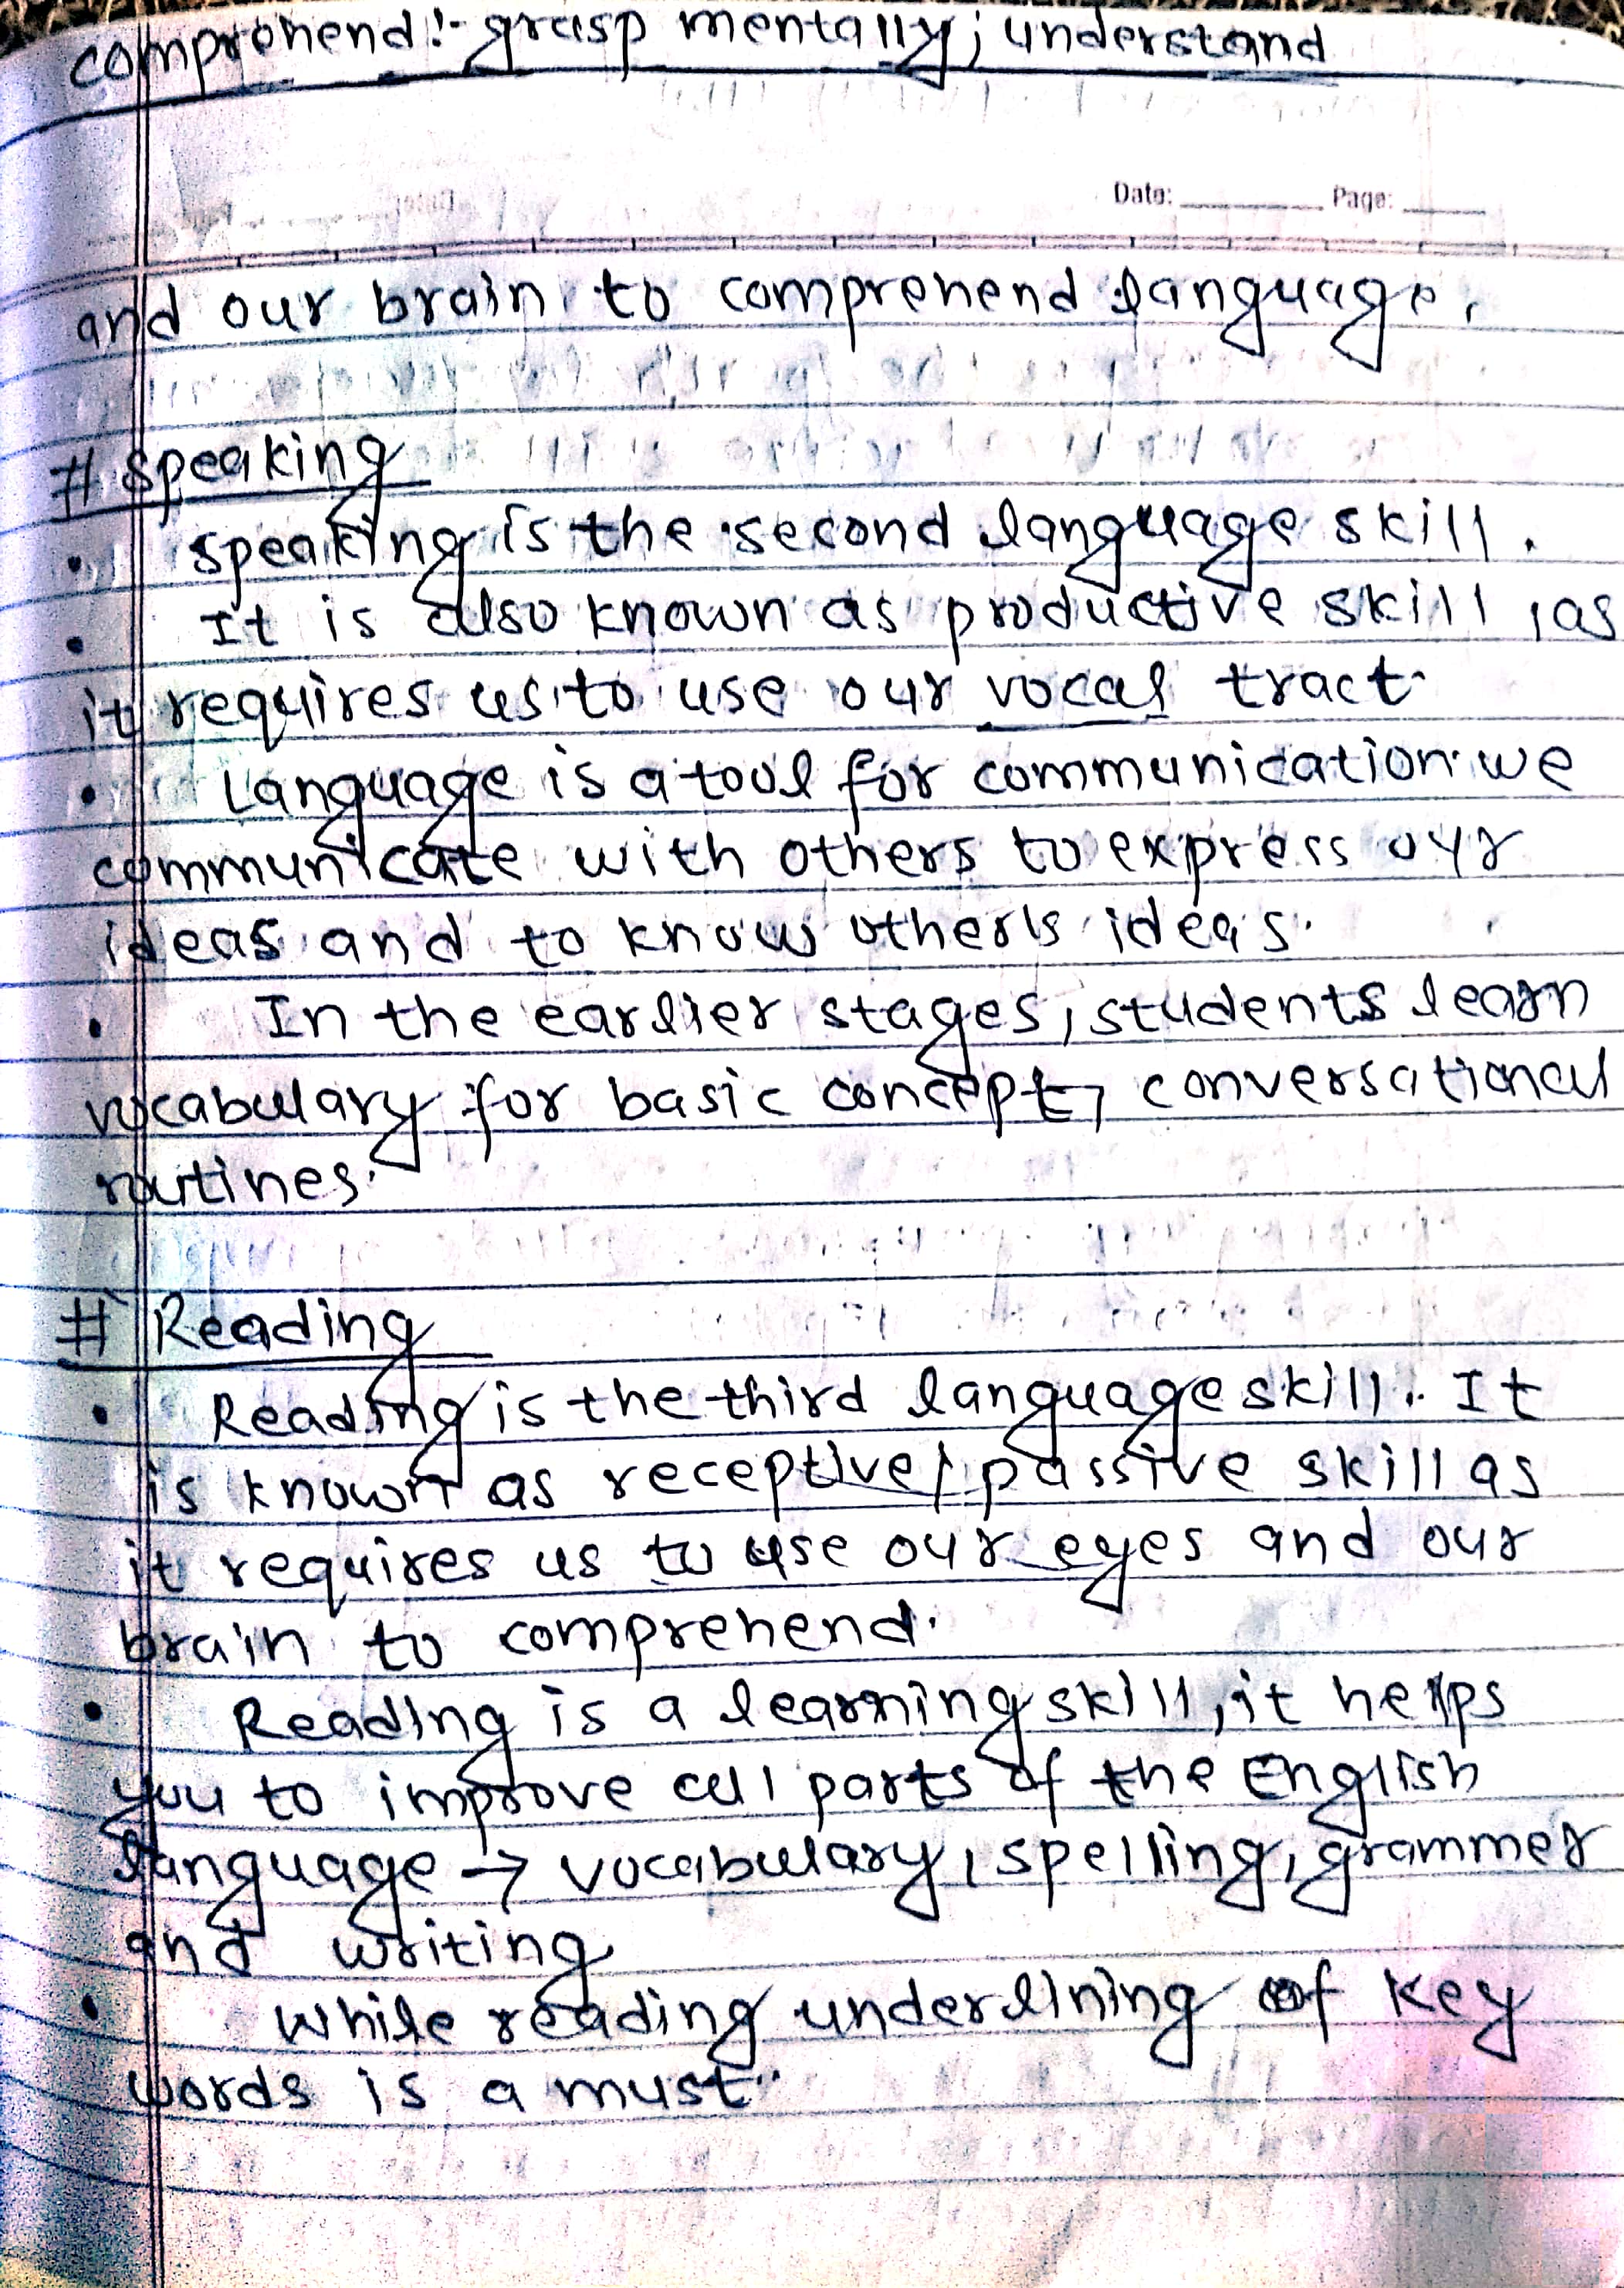 comprehend:- grasp mentally; understand
Date: Page:
and our brain to comprehend language.
# speaking
• speaking is the second language skill.
• It is also known as productive skill, as
it requires us to use our vocal tract.
• Language is a tool for communication. we
communicate with others to express our
ideas and to know other's ideas.
• In the earlier stages, students learn
vocabulary for basic concept, conversational
routines.
# Reading
• Reading is the third language skill. It
is known as receptive/passive skill as
it requires us to use our eyes and our
brain to comprehend.
• Reading is a learning skill, it helps
you to improve all parts of the English
language → vocabulary, spelling, grammer
and writing
• While reading underlining of key
words is a must.